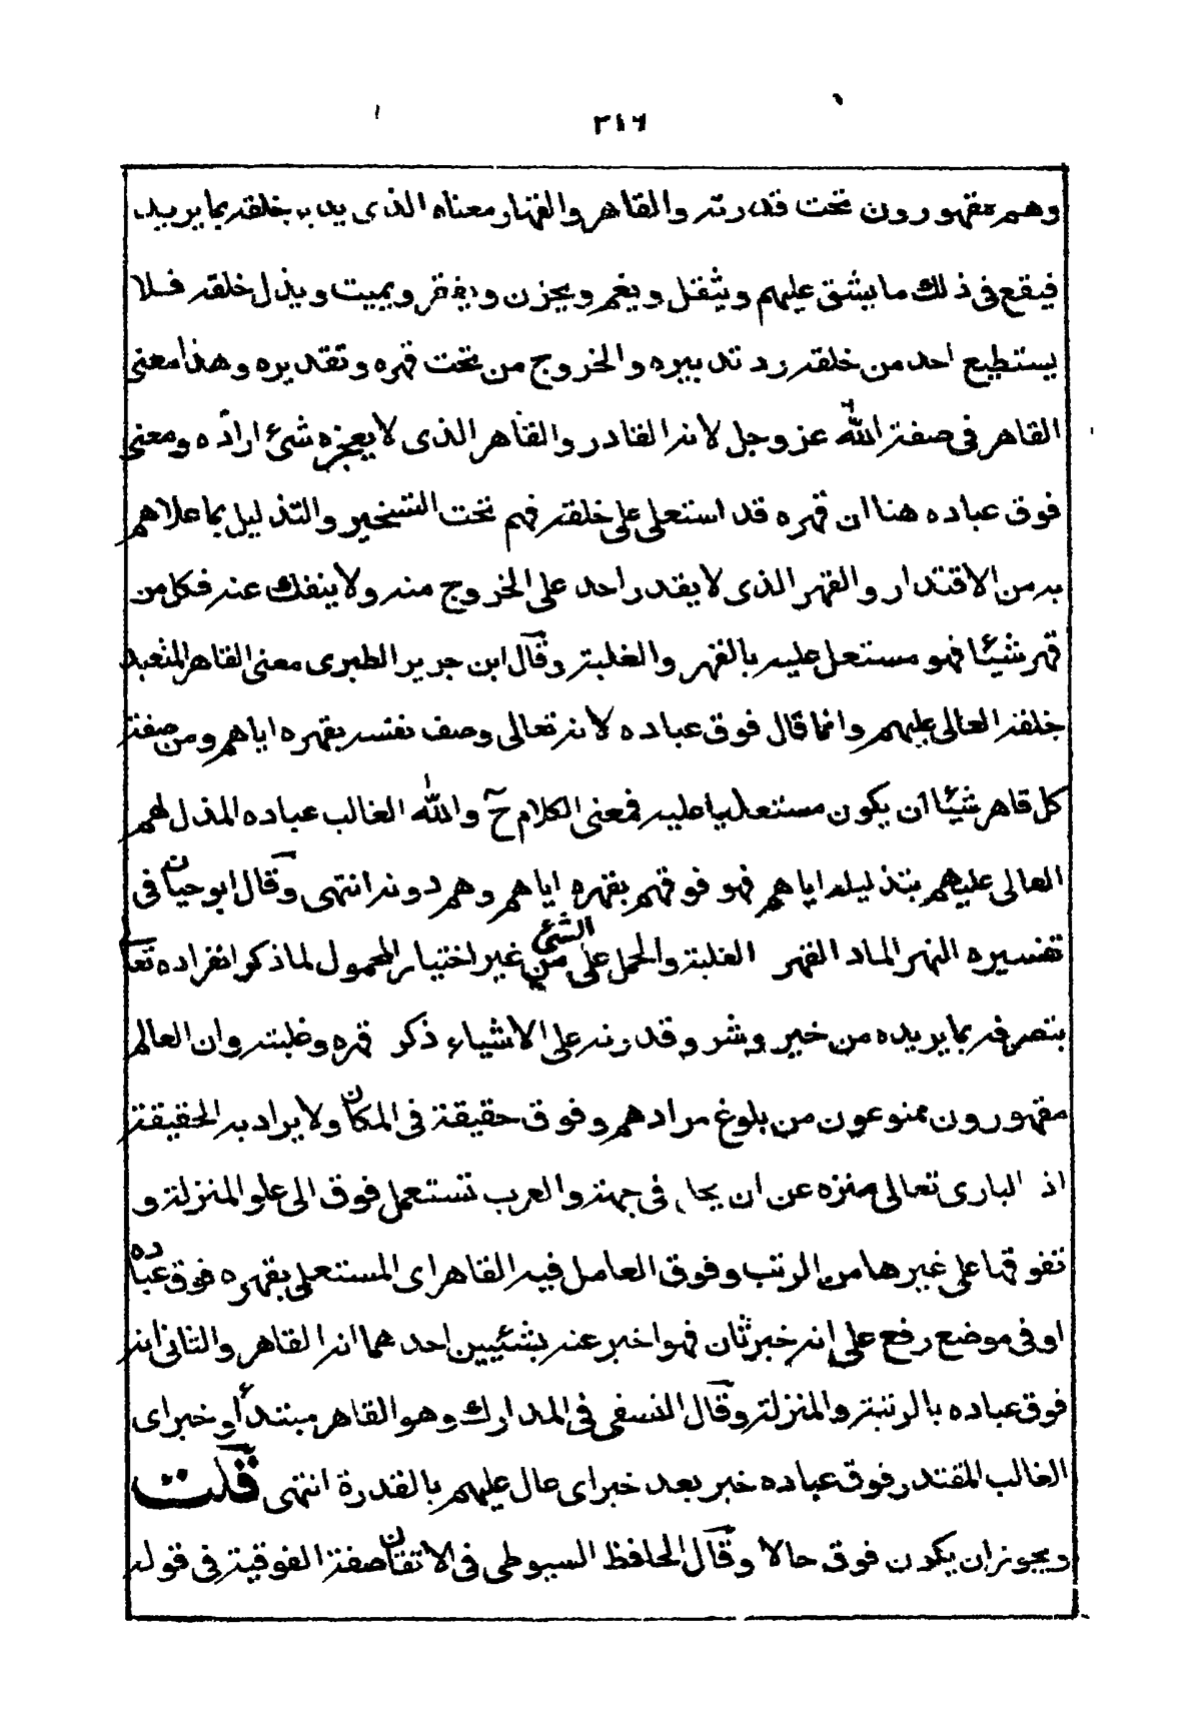 ٣١٦
وهم مقهورون تحت قدرته والقاهر والقهار معناه الذى يدبر خلقه بما يريد
فيقع فى ذلك ما يشق عليهم ويثقل ويغم ويحزن ويفقر ويميت ويذل خلقه فلا
يستطيع احد من خلقه رد تدبيره والخروج من تحت قهره وتقديره وهذا معنى
القاهر فى صفة الله عز وجل لانه القادر والقاهر الذى لا يعجزه شئ اراده ومعنى
فوق عباده هنا ان قهره قد استعلى على خلقه فهم تحت التسخير والتذليل بما علاهم
به من الاقتدار والقهر الذى لا يقدر احد على الخروج منه ولا ينفك عنه فكل من
قهر شيئا فهو مستعل عليه بالقهر والغلبة وقال ابن جرير الطبرى معنى القاهر المتعبد
خلقه العالى عليهم وانما قال فوق عباده لانه تعالى وصف نفسه بقهره اياهم ومن صفة
كل قاهر شيئا ان يكون مستعليا عليه فمعنى الكلام ح والله الغالب عباده المذل لهم
العالى عليهم بتذليله اياهم فهو فوقهم بقهره اياهم وهم دونه انتهى وقال ابو حيان فى
تفسيره النهر الماد القهر الغلبة والحمل على الشئ من غير اختيار المحمول لما ذكر انفراده تعا
بتصرفه بما يريده من خير وشر وقدرته على الاشياء ذكر قهره وغلبته وان العالم
مقهورون ممنوعون من بلوغ مرادهم وفوق حقيقة فى المكان ولا يراد به الحقيقة
اذ البارى تعالى منزه عن ان يحل فى جهة والعرب تستعمل فوق الى علو المنزلة و
تفوقها على غيرها من الرتب وفوق العامل فيه القاهر اى المستعلى بقهره فوق عباده
او فى موضع رفع على انه خبر ثان فهو اخبر عنه بشئيين احدهما انه القاهر والثانى انه
فوق عباده بالرتبة والمنزلة وقال النسفى فى المدارك وهو القاهر مبتدأ وخبر اى
الغالب المقتدر فوق عباده خبر بعد خبر اى عال عليهم بالقدرة انتهى قلت
ويجوز ان يكون فوق حالا وقال الحافظ السيوطى فى الاتقان صفة الفوقية فى قوله